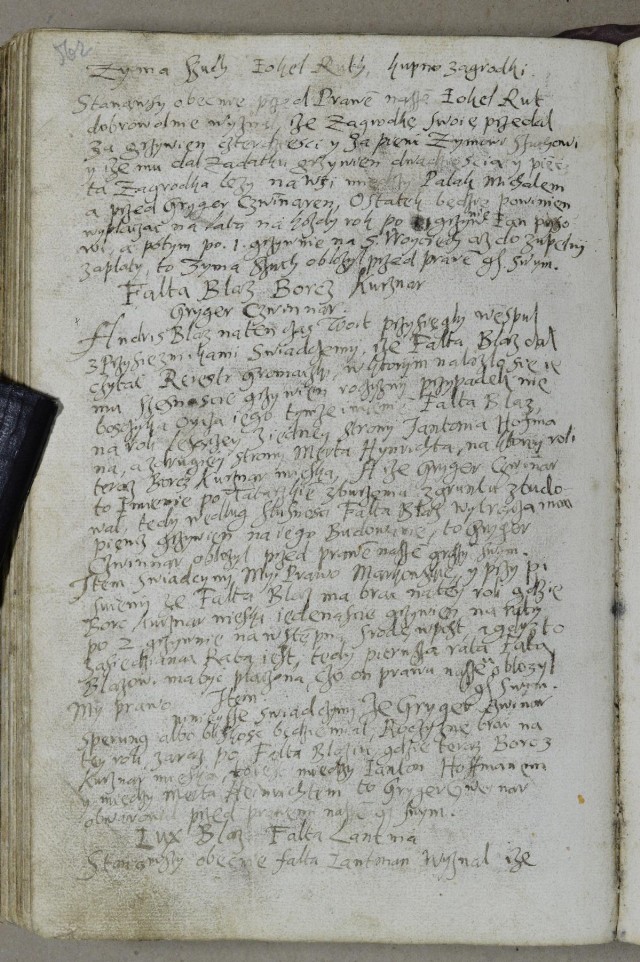 562
Zyma Szuch Iokel Ruty, kupno zagrodki.
Stanąwszy obecnie przed Prawe nasze Iokel Rut
dobrowolnie wyznal, iże Zagrodkę swoię przedal
za grzywien czterdziesci y Zymowi Szuchowi
y iże mu dal Zadatku grzywien dwadziescia y pięć
ta Zagrodka lezy na wsi między Palak Michalem
a przed Gryger Czwinarem, Ostatek będzie powinien
wyplacać na raty na kożdy rok po grzywnie
a potym po .1. grzywnie na S. Woyciech aż do zupelny
zaplaty, to Zyma Szuch oblożyl przed prawe gs. swym.
Falta Blaz Borcz Kurznar
Gryger Czwinnar.
Andris Blaz natenczas Woit przysięgly wespul
z Przysiężnikami Swiadczymy, iże Falta Blaz dal
czytać Reiestr gromadzki, w ktorym nalazlo się iż
ma szesnascie grzywien rodzizny przypadek nie
boszczyka Oyca iego tymże imieniem Falta Blaz,
na roli leżączey z iedney strony Jantona Hofma
na, a z drugiey strony Merta Hynrichta, na ktorey roli
teraz Borcz Kurznar mieszka, A iże Gryger Czwinar
to Imienie po Tatarskie zburzeniu z gruntu zbudo
wal, tedy wedlug slusznosci Falta Blaz wytrąca mu
piencz grzywien na iego Budowanie, to Gryger
Czwinnar oblożyl przed prawe nasze groszy swym.
Item swiadczymy My Prawo Markowskie, y przy pi
sujemy że Falta Blaz ma brać na tej roli gdzie
Borc Kurznar mieszka iedenascie grzywien na raty
po 2. grzywnie na wstępną srodę w post,
Rata iest, tedy pierwsza rata Falta
Blazowi ma być placona, czo on prawu nasze oblożyl
gs swym.
My prawo Item
swiadczymy że Gryger Czwinar
sperung albo bliskosc będzie mial, Rodzizne brać na
tey roli, zaraz po Falta Blaziu gdzie teraz Borcz
Kurznar mieszka, między Janton Hoffmanem
y między Merta Heinrichtem to Gryger Czwinar
obwarowal przed prawem nasze gs swym.
Lux Blaz Falta Lantma
Stanąwszy obecnie Falta Lantman wyznal iże